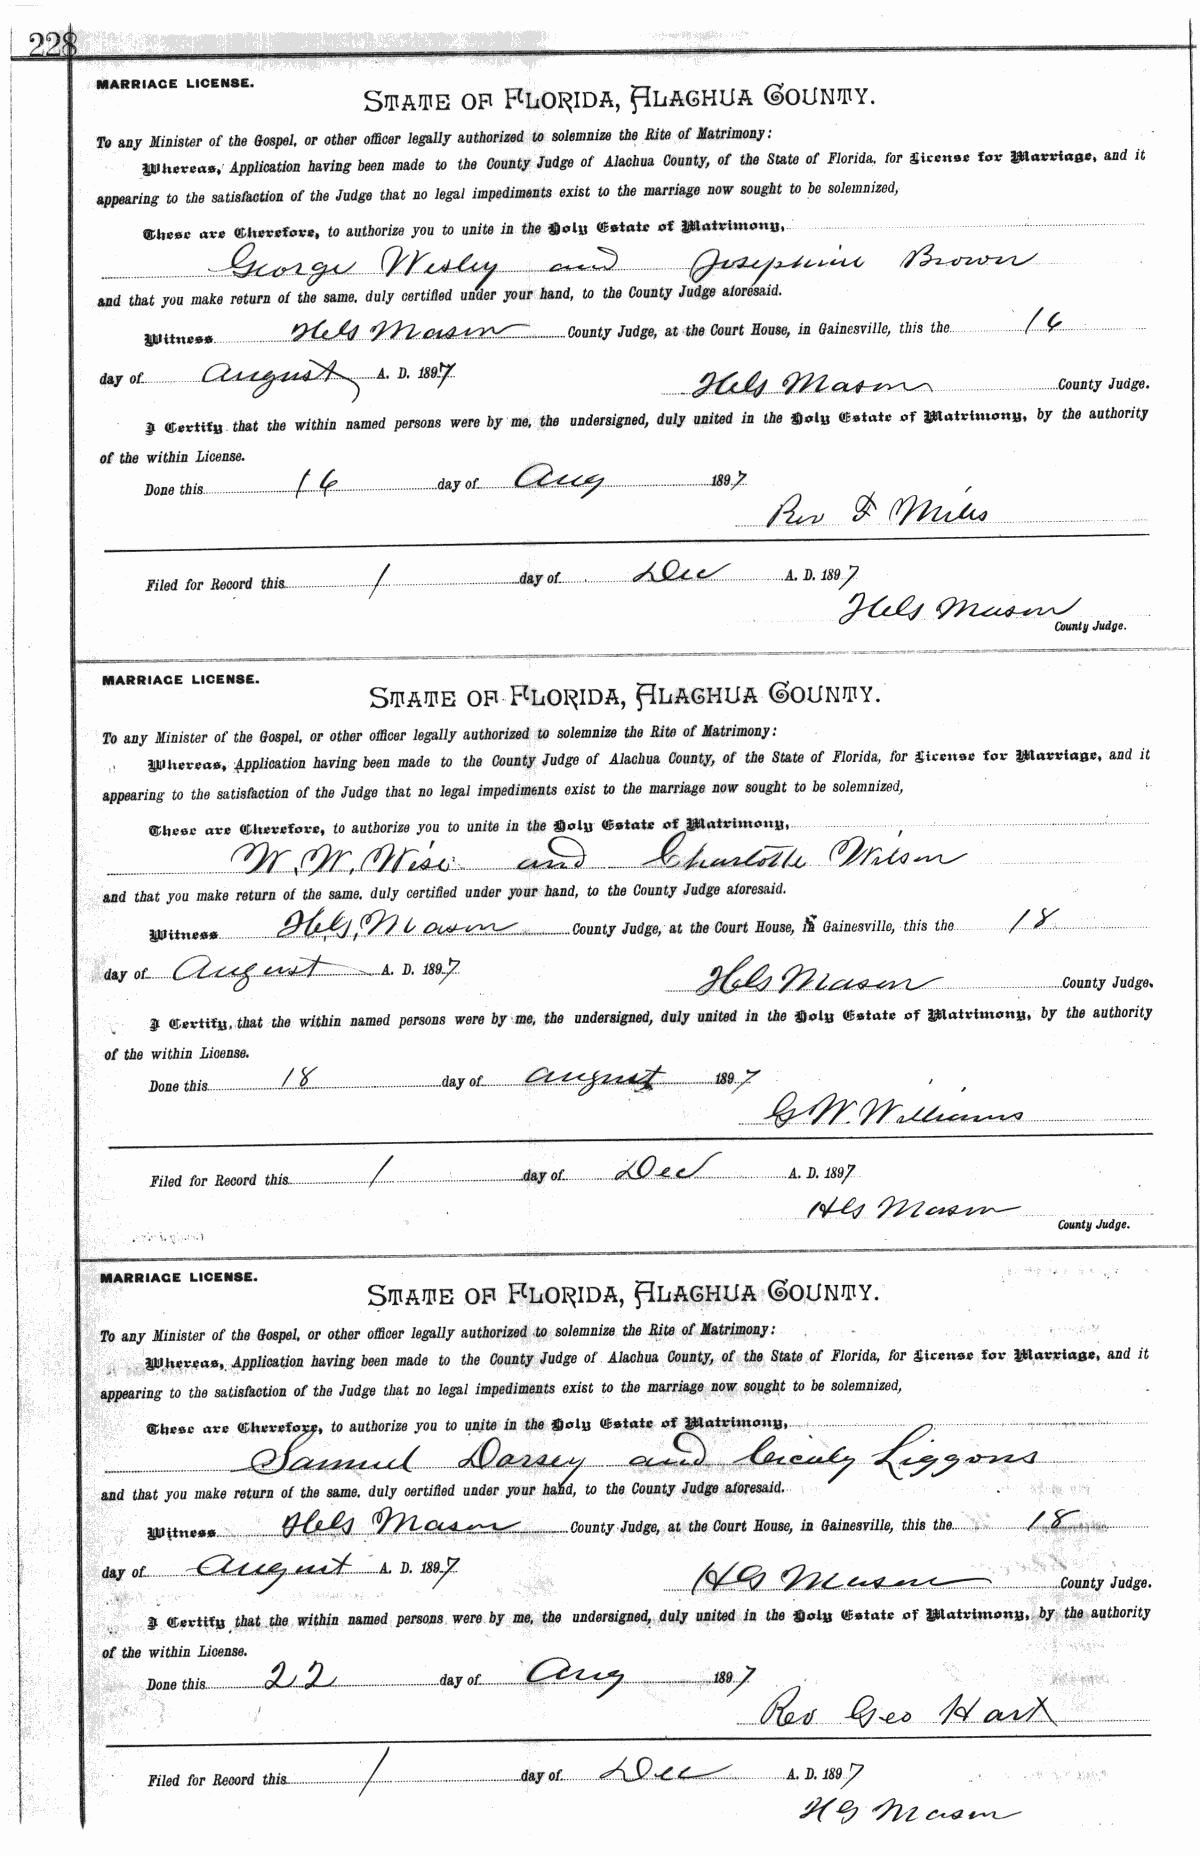 228
MARRIAGE LICENSE.
STATE OF FLORIDA, ALACHUA COUNTY.
To any Minister of the Gospel, or other officer legally authorized to solemnize the Rite of Matrimony:
Whereas, Application having been made to the County Judge of Alachua County, of the State of Florida, for License for Marriage, and it
appearing to the satisfaction of the Judge that no legal impediments exist to the marriage now sought to be solemnized,
These are Therefore, to authorize you to unite in the Holy Estate of Matrimony,
George Wesley and Josephine Brown
and that you make return of the same, duly certified under your hand, to the County Judge aforesaid.
Witness Mason County Judge, at the Court House, in Gainesville, this the 16
day of August A. D. 1897
Mason County Judge.
I Certify that the within named persons were by me, the undersigned, duly united in the Holy Estate of Matrimony, by the authority
of the within License.
Done this 16 day of Aug 1897
Rev F Miles
Filed for Record this 1 day of Dec A. D. 1897
Mason
County Judge.
MARRIAGE LICENSE.
STATE OF FLORIDA, ALACHUA COUNTY.
To any Minister of the Gospel, or other officer legally authorized to solemnize the Rite of Matrimony:
Whereas, Application having been made to the County Judge of Alachua County, of the State of Florida, for License for Marriage, and it
appearing to the satisfaction of the Judge that no legal impediments exist to the marriage now sought to be solemnized,
These are Therefore, to authorize you to unite in the Holy Estate of Matrimony,
W. W. Wise and Charlotte Wilson
and that you make return of the same, duly certified under your hand, to the County Judge aforesaid.
Witness Mason County Judge, at the Court House, in Gainesville, this the 18
day of August A. D. 1897
Mason County Judge.
I Certify, that the within named persons were by me, the undersigned, duly united in the Holy Estate of Matrimony, by the authority
of the within License.
Done this 18 day of August 1897
G W. Williams
Filed for Record this 1 day of Dec A. D. 1897
Mason
County Judge.
MARRIAGE LICENSE.
STATE OF FLORIDA, ALACHUA COUNTY.
To any Minister of the Gospel, or other officer legally authorized to solemnize the Rite of Matrimony:
Whereas, Application having been made to the County Judge of Alachua County, of the State of Florida, for License for Marriage, and it
appearing to the satisfaction of the Judge that no legal impediments exist to the marriage now sought to be solemnized,
These are Therefore, to authorize you to unite in the Holy Estate of Matrimony,
Samuel Dorsey and Cicely Liggons
and that you make return of the same, duly certified under your hand, to the County Judge aforesaid.
Witness Mason County Judge, at the Court House, in Gainesville, this the 18
day of August A. D. 1897
HG Mason County Judge.
I Certify that the within named persons were by me, the undersigned, duly united in the Holy Estate of Matrimony, by the authority
of the within License.
Done this 22 day of Aug 1897
Rev Geo Hart
Filed for Record this 1 day of Dec A. D. 1897
HG Mason